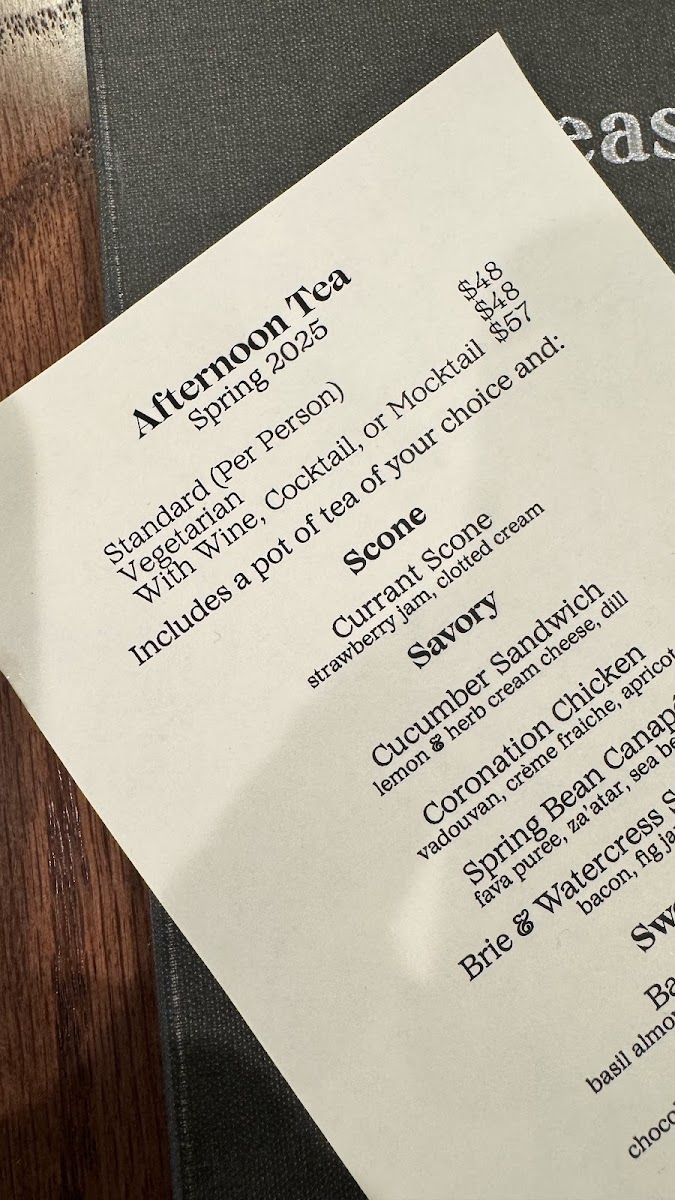 eas
Afternoon Tea
Spring 2025
Standard (Per Person) $48
Vegetarian $48
With Wine, Cocktail, or Mocktail $57
Includes a pot of tea of your choice and:
Scone
Currant Scone
strawberry jam, clotted cream
Savory
Cucumber Sandwich
lemon & herb cream cheese, dill
Coronation Chicken
vadouvan, crème fraiche, apricot
Spring Bean Canap
fava purée, za'atar, sea be
Brie & Watercress S
bacon, fig ja
Swe
Ba
basil almo
choco